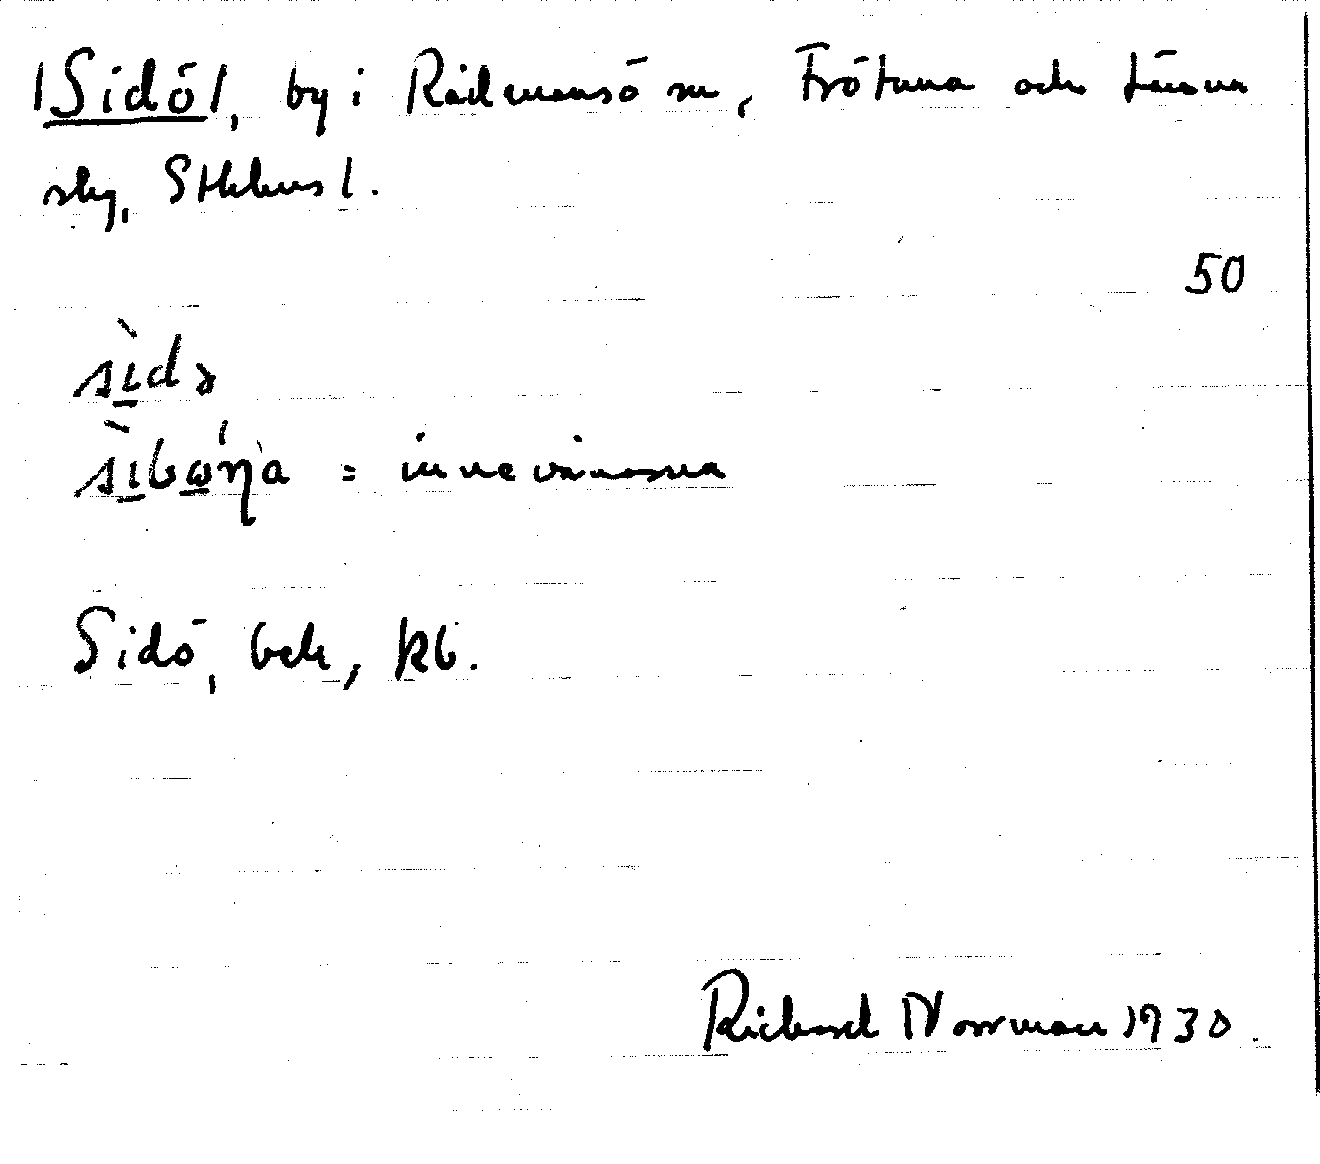 /Sidö/, by i Rådmansö sn, Frötuna och Länna
skg, Sthlms l.
50
sìdə
= innevånarna
Sidö, bek, kb.
Richard Norrman 1930.